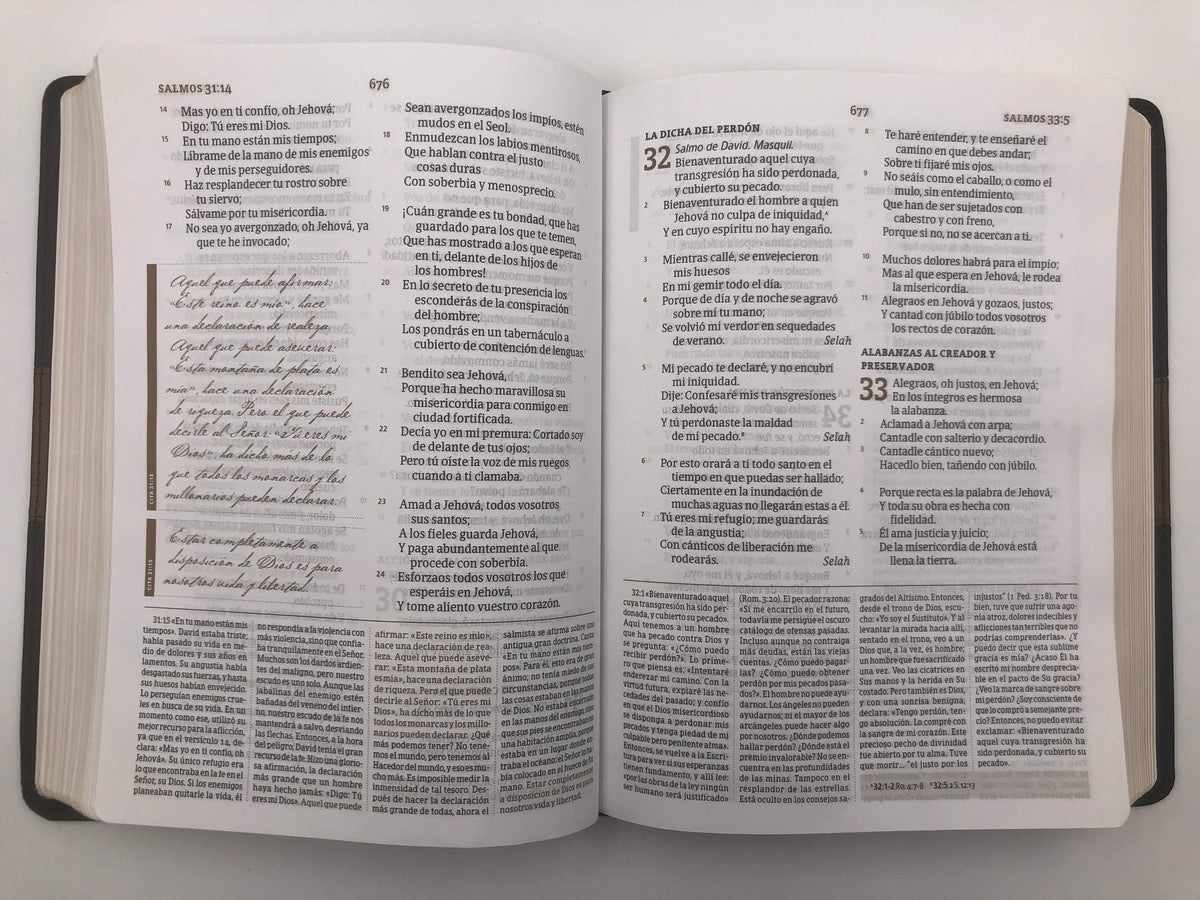 SALMOS 31:14
676
14 Mas yo en ti confío, oh Jehová;
Digo: Tú eres mi Dios.
15 En tu mano están mis tiempos;
Líbrame de la mano de mis enemigos
y de mis perseguidores.
16 Haz resplandecer tu rostro sobre
tu siervo;
Sálvame por tu misericordia.
17 No sea yo avergonzado, oh Jehová, ya
que te he invocado;
Aquel que puede afirmar:
«Este reino es mío», hace
una declaración de realeza.
Aquel que puede aseverar:
«Esta montaña de plata es
mía», hace una declaración
de riqueza. Pero el que puede
decirle al Señor: «Tú eres mi
Dios», ha dicho más de lo
que todos los monarcas y los
millonarios pueden declarar.
CITA 31:15
Estar completamente a
disposición de Dios es para
nosotros vida y libertad.
CITA 31:15
Sean avergonzados los impíos, estén
mudos en el Seol.
18 Enmudezcan los labios mentirosos,
Que hablan contra el justo
cosas duras
Con soberbia y menosprecio.
19 ¡Cuán grande es tu bondad, que has
guardado para los que te temen,
Que has mostrado a los que esperan
en ti, delante de los hijos de
los hombres!
20 En lo secreto de tu presencia los
esconderás de la conspiración
del hombre;
Los pondrás en un tabernáculo a
cubierto de contención de lenguas.
21 Bendito sea Jehová,
Porque ha hecho maravillosa su
misericordia para conmigo en
ciudad fortificada.
22 Decía yo en mi premura: Cortado soy
de delante de tus ojos;
Pero tú oíste la voz de mis ruegos
cuando a ti clamaba.
23 Amad a Jehová, todos vosotros
sus santos;
A los fieles guarda Jehová,
Y paga abundantemente al que
procede con soberbia.
24 Esforzaos todos vosotros los que
esperáis en Jehová,
Y tome aliento vuestro corazón.
31:15 «En tu mano están mis
tiempos». David estaba triste;
había pasado su vida en me-
dio de dolores y sus años en
lamentos. Su angustia había
desgastado sus fuerzas, y hasta
sus huesos habían envejecido.
Lo perseguían enemigos crue-
les en busca de su vida. En un
momento como ese, utilizó su
mejor recurso para la aflicción,
ya que en el versículo 14, de-
clara: «Mas yo en ti confío, oh
Jehová». Su único refugio era
lo que encontraba en la fe en el
Señor, su Dios. Si los enemigos
planeaban quitarle la vida, él
no respondía a la violencia con
más violencia, sino que confia-
ba tranquilamente en el Señor.
Muchos son los dardos ardien-
tes del maligno, pero nuestro
escudo es uno solo. Aunque las
jabalinas del enemigo estén
bañadas del veneno del infier-
no, nuestro escudo de la fe nos
mantendrá a salvo, desviando
las flechas. Entonces, a la hora
del peligro, David tenía el gran
recurso de la fe. Hizo una glorio-
sa afirmación, la declaración
más grande que un hombre
haya hecho jamás: «Digo: Tú
eres mi Dios». Aquel que puede
afirmar: «Este reino es mío»,
hace una declaración de rea-
leza. Aquel que puede aseve-
rar: «Esta montaña de plata
es mía», hace una declaración
de riqueza. Pero el que puede
decirle al Señor: «Tú eres mi
Dios», ha dicho más de lo que
todos los monarcas y los millo-
narios pueden declarar. ¿Qué
más podemos tener? No tene-
mos el mundo, pero tenemos al
Hacedor del mundo, y eso es mu-
cho más. Es imposible medir la
inmensidad de tal tesoro. Des-
pués de hacer la declaración
más grande de todas, ahora el
salmista se afirma sobre una
antigua gran doctrina. Canta:
«En tu mano están mis tiem-
pos». Para él, esto era de gran
ánimo; no tenía miedo de sus
circunstancias, porque todas
las cosas estaban en las manos
de Dios. No estaba encerrado
en las manos del enemigo, sino
que sus pies se encontraban en
una habitación amplia, porque
estaba en un lugar donde en-
traba el océano; el Señor lo ha-
bía colocado en el hueco de Su
mano. Estar completamente
a disposición de Dios es para
nosotros vida y libertad.
677
SALMOS 33:5
LA DICHA DEL PERDÓN
32 Salmo de David. Masquil.
Bienaventurado aquel cuya
transgresión ha sido perdonada,
y cubierto su pecado.
2 Bienaventurado el hombre a quien
Jehová no culpa de iniquidad,A
Y en cuyo espíritu no hay engaño.
3 Mientras callé, se envejecieron
mis huesos
En mi gemir todo el día.
4 Porque de día y de noche se agravó
sobre mí tu mano;
Se volvió mi verdor en sequedades
de verano. Selah
5 Mi pecado te declaré, y no encubrí
mi iniquidad.
Dije: Confesaré mis transgresiones
a Jehová;
Y tú perdonaste la maldad
de mi pecado.B Selah
6 Por esto orará a ti todo santo en el
tiempo en que puedas ser hallado;
Ciertamente en la inundación de
muchas aguas no llegarán estas a él.
7 Tú eres mi refugio; me guardarás
de la angustia;
Con cánticos de liberación me
rodearás. Selah
8 Te haré entender, y te enseñaré el
camino en que debes andar;
Sobre ti fijaré mis ojos.
9 No seáis como el caballo, o como el
mulo, sin entendimiento,
Que han de ser sujetados con
cabestro y con freno,
Porque si no, no se acercan a ti.
10 Muchos dolores habrá para el impío;
Mas al que espera en Jehová, le rodea
la misericordia.
11 Alegraos en Jehová y gozaos, justos;
Y cantad con júbilo todos vosotros
los rectos de corazón.
ALABANZAS AL CREADOR Y
PRESERVADOR
33 Alegraos, oh justos, en Jehová;
En los íntegros es hermosa
la alabanza.
2 Aclamad a Jehová con arpa;
Cantadle con salterio y decacordio.
3 Cantadle cántico nuevo;
Hacedlo bien, tañendo con júbilo.
4 Porque recta es la palabra de Jehová,
Y toda su obra es hecha con
fidelidad.
5 Él ama justicia y juicio;
De la misericordia de Jehová está
llena la tierra.
32:1 «Bienaventurado aquel
cuya transgresión ha sido per-
donada, y cubierto su pecado».
Aquí tenemos a un hombre
que ha pecado contra Dios y
se pregunta: «¿Cómo puedo
recibir perdón?». Lo prime-
ro que piensa es: «Intentaré
enderezar mi camino. Con la
virtud futura, expiaré las ne-
cedades del pasado; y confío
en que el Dios misericordioso
se disponga a perdonar mis
pecados y tenga piedad de mi
culpable pero penitente alma».
Entonces, se vuelve a la Escri-
tura para ver si sus esperanzas
tienen fundamento, y allí lee:
«por las obras de la ley ningún
ser humano será justificado»
(Rom. 3:20). El pecador razona:
«Si me encarrilo en el futuro,
todavía me persigue el oscuro
catálogo de ofensas pasadas.
Incluso aunque no contraiga
más deudas, están las viejas
cuentas. ¿Cómo puedo pagar-
las? ¿Cómo puedo obtener
perdón por mis pecados pasa-
dos?». El hombre no puede ayu-
darnos. Los ángeles no pueden
ayudarnos; ni el mayor de los
arcángeles puede hacer algo
por nosotros. ¿Dónde podemos
hallar perdón? ¿Dónde está el
premio invalorable? No se en-
cuentra en las profundidades
de las minas. Tampoco en el
resplandor de las estrellas.
Está oculto en los consejos sa-
grados del Altísimo. Entonces,
desde el trono de Dios, escu-
cho: «Yo soy el Sustituto». Y al
levantar la mirada hacia allí,
sentado en el trono, veo a un
Dios que, a la vez, es hombre;
un hombre que fue sacrificado
una vez. Veo las cicatrices en
Sus manos y la herida en Su
costado. Pero también es Dios,
y con una sonrisa benigna,
declara: «Tengo perdón, ten-
go absolución. Lo compré con
la sangre de mi corazón. Este
precioso pecho de divinidad
fue abierto por tu alma. Tuve
que morir... “el justo por los
injustos” (1 Ped. 3:18). Por tu
bien, tuve que sufrir una ago-
nía atroz, dolores indecibles y
aflicciones tan terribles que no
podrías comprenderlas». ¿Y
puedo decir que esta sublime
gracia es mía? ¿Acaso Él ha
escrito mi nombre desprecia-
ble en el pacto de Su gracia?
¿Veo la marca de sangre sobre
mi perdón? ¿Soy consciente de
que lo compró a semejante pre-
cio? Entonces, no puedo evitar
exclamar: «Bienaventurado
aquel cuya transgresión ha
sido perdonada, y cubierto su
pecado».
A 32:1-2 Ro. 4:7-8 B 32:5 2 S. 12:13